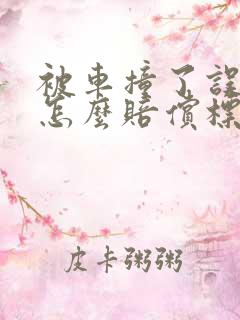 被車撞了誤
怎麼賠償標
皮卡粥粥